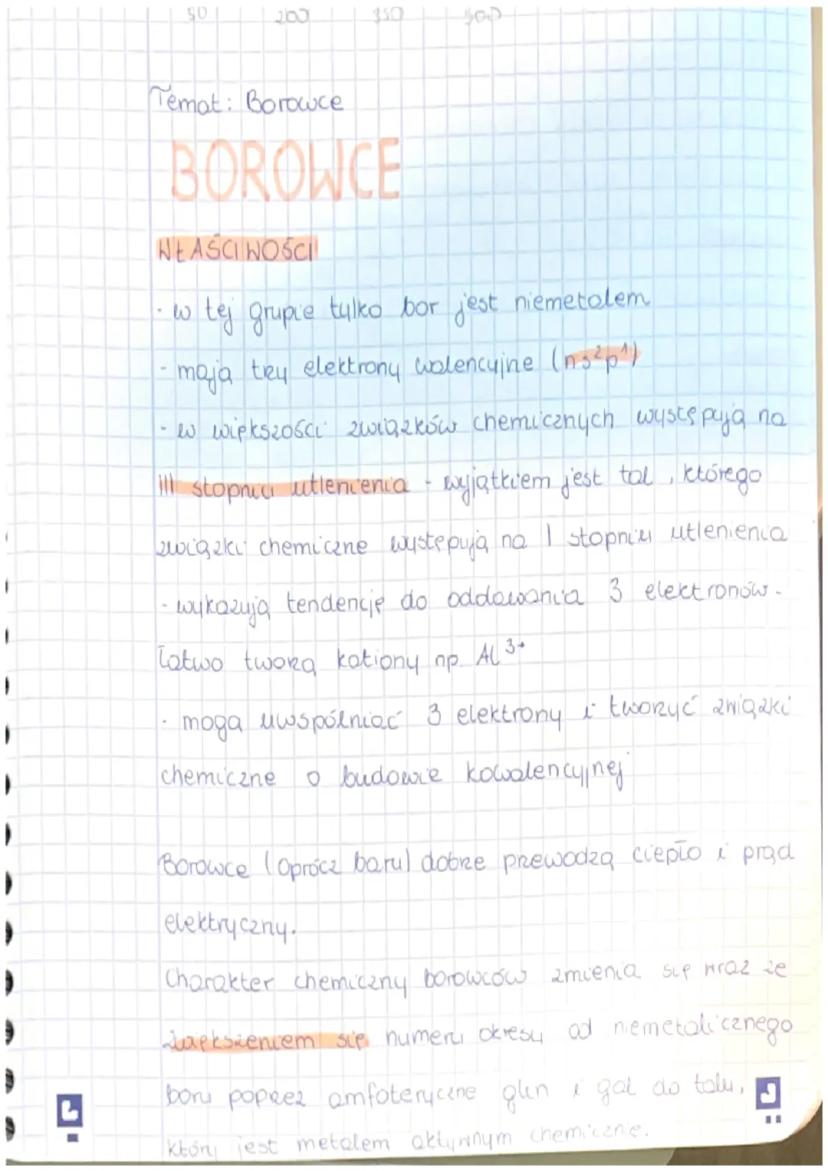 50 200 350 500
Temat: Borowce
BOROWCE
WŁAŚCIWOŚCI
- w tej grupie tylko bor jest niemetalem
- mają trzy elektrony walencyjne (ns²p¹)
- w większości związków chemicznych występują na
III stopniu utlenienia - wyjątkiem jest tal, którego
związki chemiczne występują na I stopniu utlenienia
- wykazują tendencję do oddawania 3 elektronów -
łatwo tworzą kationy np. Al³⁺
- mogą uwspólniać 3 elektrony i tworzyć związki
chemiczne o budowie kowalencyjnej
Borowce (oprócz baru) dobrze przewodzą ciepło i prąd
elektryczny.
Charakter chemiczny borowców zmienia się wraz ze
zwiększeniem się numeru okresu od niemetalicznego
boru poprzez amfoteryczne glin i gal do talu,
który jest metalem aktywnym chemicznie.